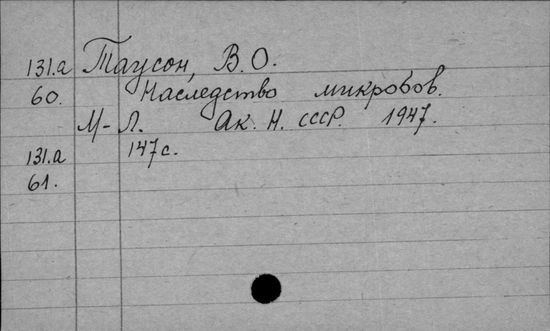 131.а Таусон, В. О.
60. Наследство микробов.
М-Л. Ак. Н. СССР. 1947.
131.а 147 с.
61.